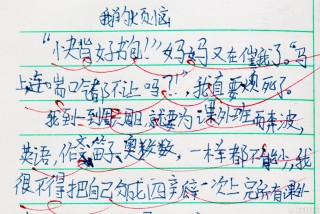 我的烦恼
“快背好书包！”妈妈又在催我了。“马
上连岗口都不让吗？！”，我真要烦死了。
我一到周六周日，就要为课外班而奔波，
英语，作文，笛子，奥数，一样都不能少，我
恨不得把自己分成四瓣一次上完所有课外